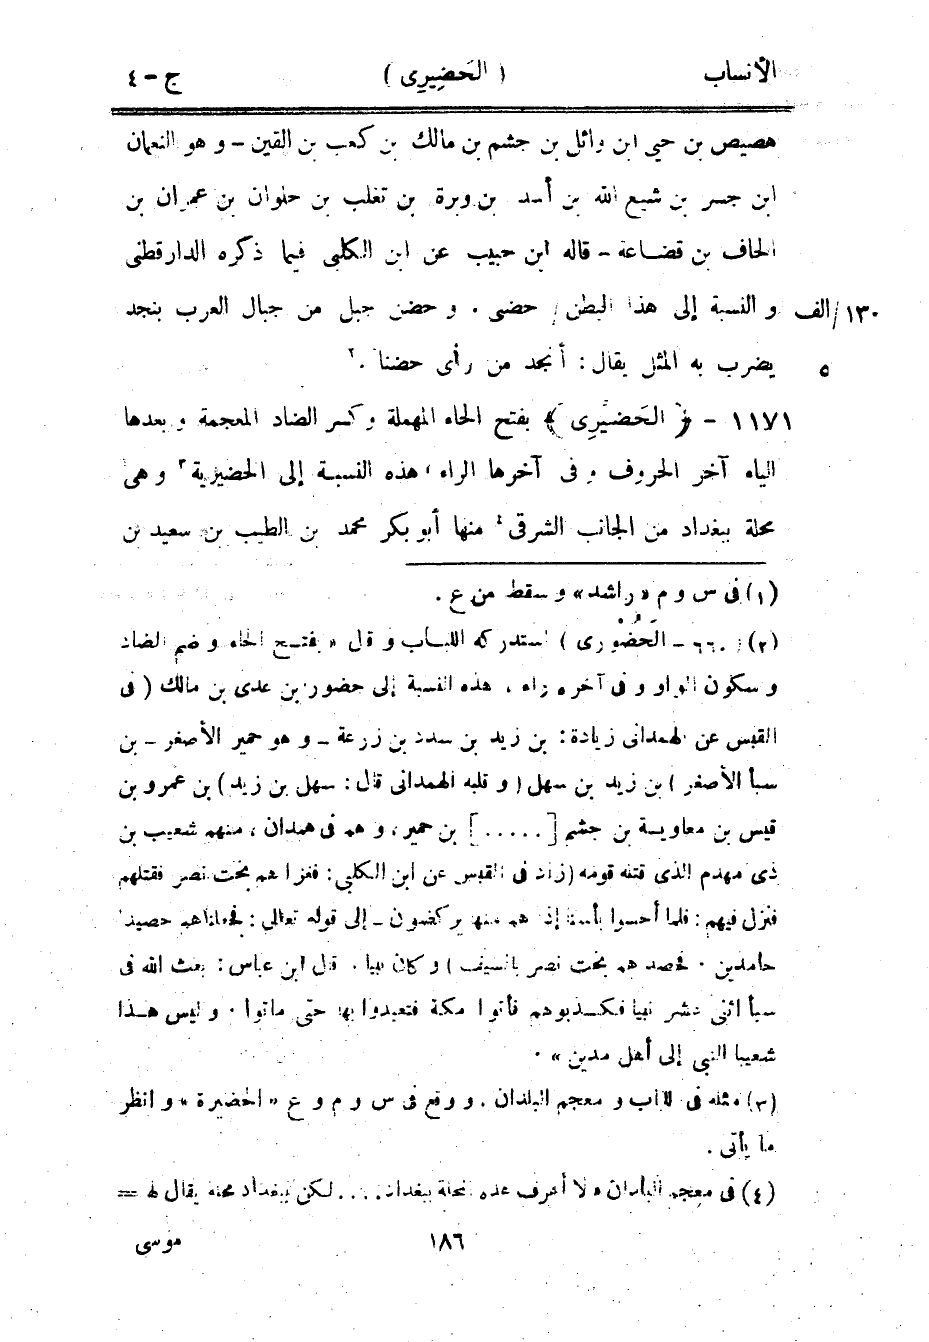 الأنساب ( الحَضِيرِى ) ج - ٤
هصيص بن حيى ابن وائل بن جشم بن مالك بن كعب بن القين - و هو النعمان
ابن جسر بن شيع الله بن أسد بن وبرة بن تغلب بن حلوان بن عمران بن
الحاف بن قضاعة - قاله ابن حبيب عن ابن الكلبى فيما ذكره الدارقطنى
١٣٠/الف و النسبة إلى هذا البطن / حضنى . و حضن جبل من جبال العرب بنجد
٥ يضرب به المثل يقال : أنجد من رأى حضنا .٢
١١٧١ - ﴿ الحَضِيْرِى ﴾ بفتح الحاء المهملة و كسر الضاد المعجمة و بعدها
الياء آخر الحروف و فى آخرها الراء ، هذه النسبة إلى الحضيرية٣ و هى
محلة ببغداد من الجانب الشرقى٤ منها أبو بكر محمد بن الطيب بن سعيد بن
(١) فى س و م « راشد » و سقط من ع .
(٢) ( ٦٦٠ - الحَضُوْرى ) استدركه اللباب و قال « بفتح الحاء و ضم الضاد
و سكون الواو و فى آخره راء ، هذه النسبة إلى حضور بن عدى بن مالك ( فى
القبس عن الهمدانى زيادة : بن زيد بن سدد بن زرعة - و هو حمير الأصغر - بن
سبأ الأصغر ) بن زيد بن سهل ( و قلبه الهمدانى قال : سهل بن زيد ) بن عمرو بن
قيس بن معاوية بن جشم [ . . . . . ] بن حمير ، و هم فى همدان ، منهم شعيب بن
ذى مهدم الذى قتله قومه ( زاد فى القبس عن ابن الكلبى : فغزا هم بخت نصر فقتلهم
فنزل فيهم : فلما أحسوا بأسنا إذا هم منها يركضون - إلى قوله تعالى : فجعلناهم حصيدا
خامدين . فحصد هم بخت نصر بالسيف ) و كان نبيا . قال ابن عباس : بعث الله فى
سبأ اثنى عشر نبيا فكذبوهم فأتوا مكة فتعبدوا بها حتى ماتوا . و ليس هذا
شعيبا النبى إلى أهل مدين » .
(٣) مثله فى اللباب و معجم البلدان . و وقع فى س و م و ع « الحضيرة » و انظر
ما يأتى .
(٤) فى معجم البلدان « لا أعرف هذه المحلة ببغداد . . . . لكن ببغداد محلة يقال لها =
١٨٦ موسى